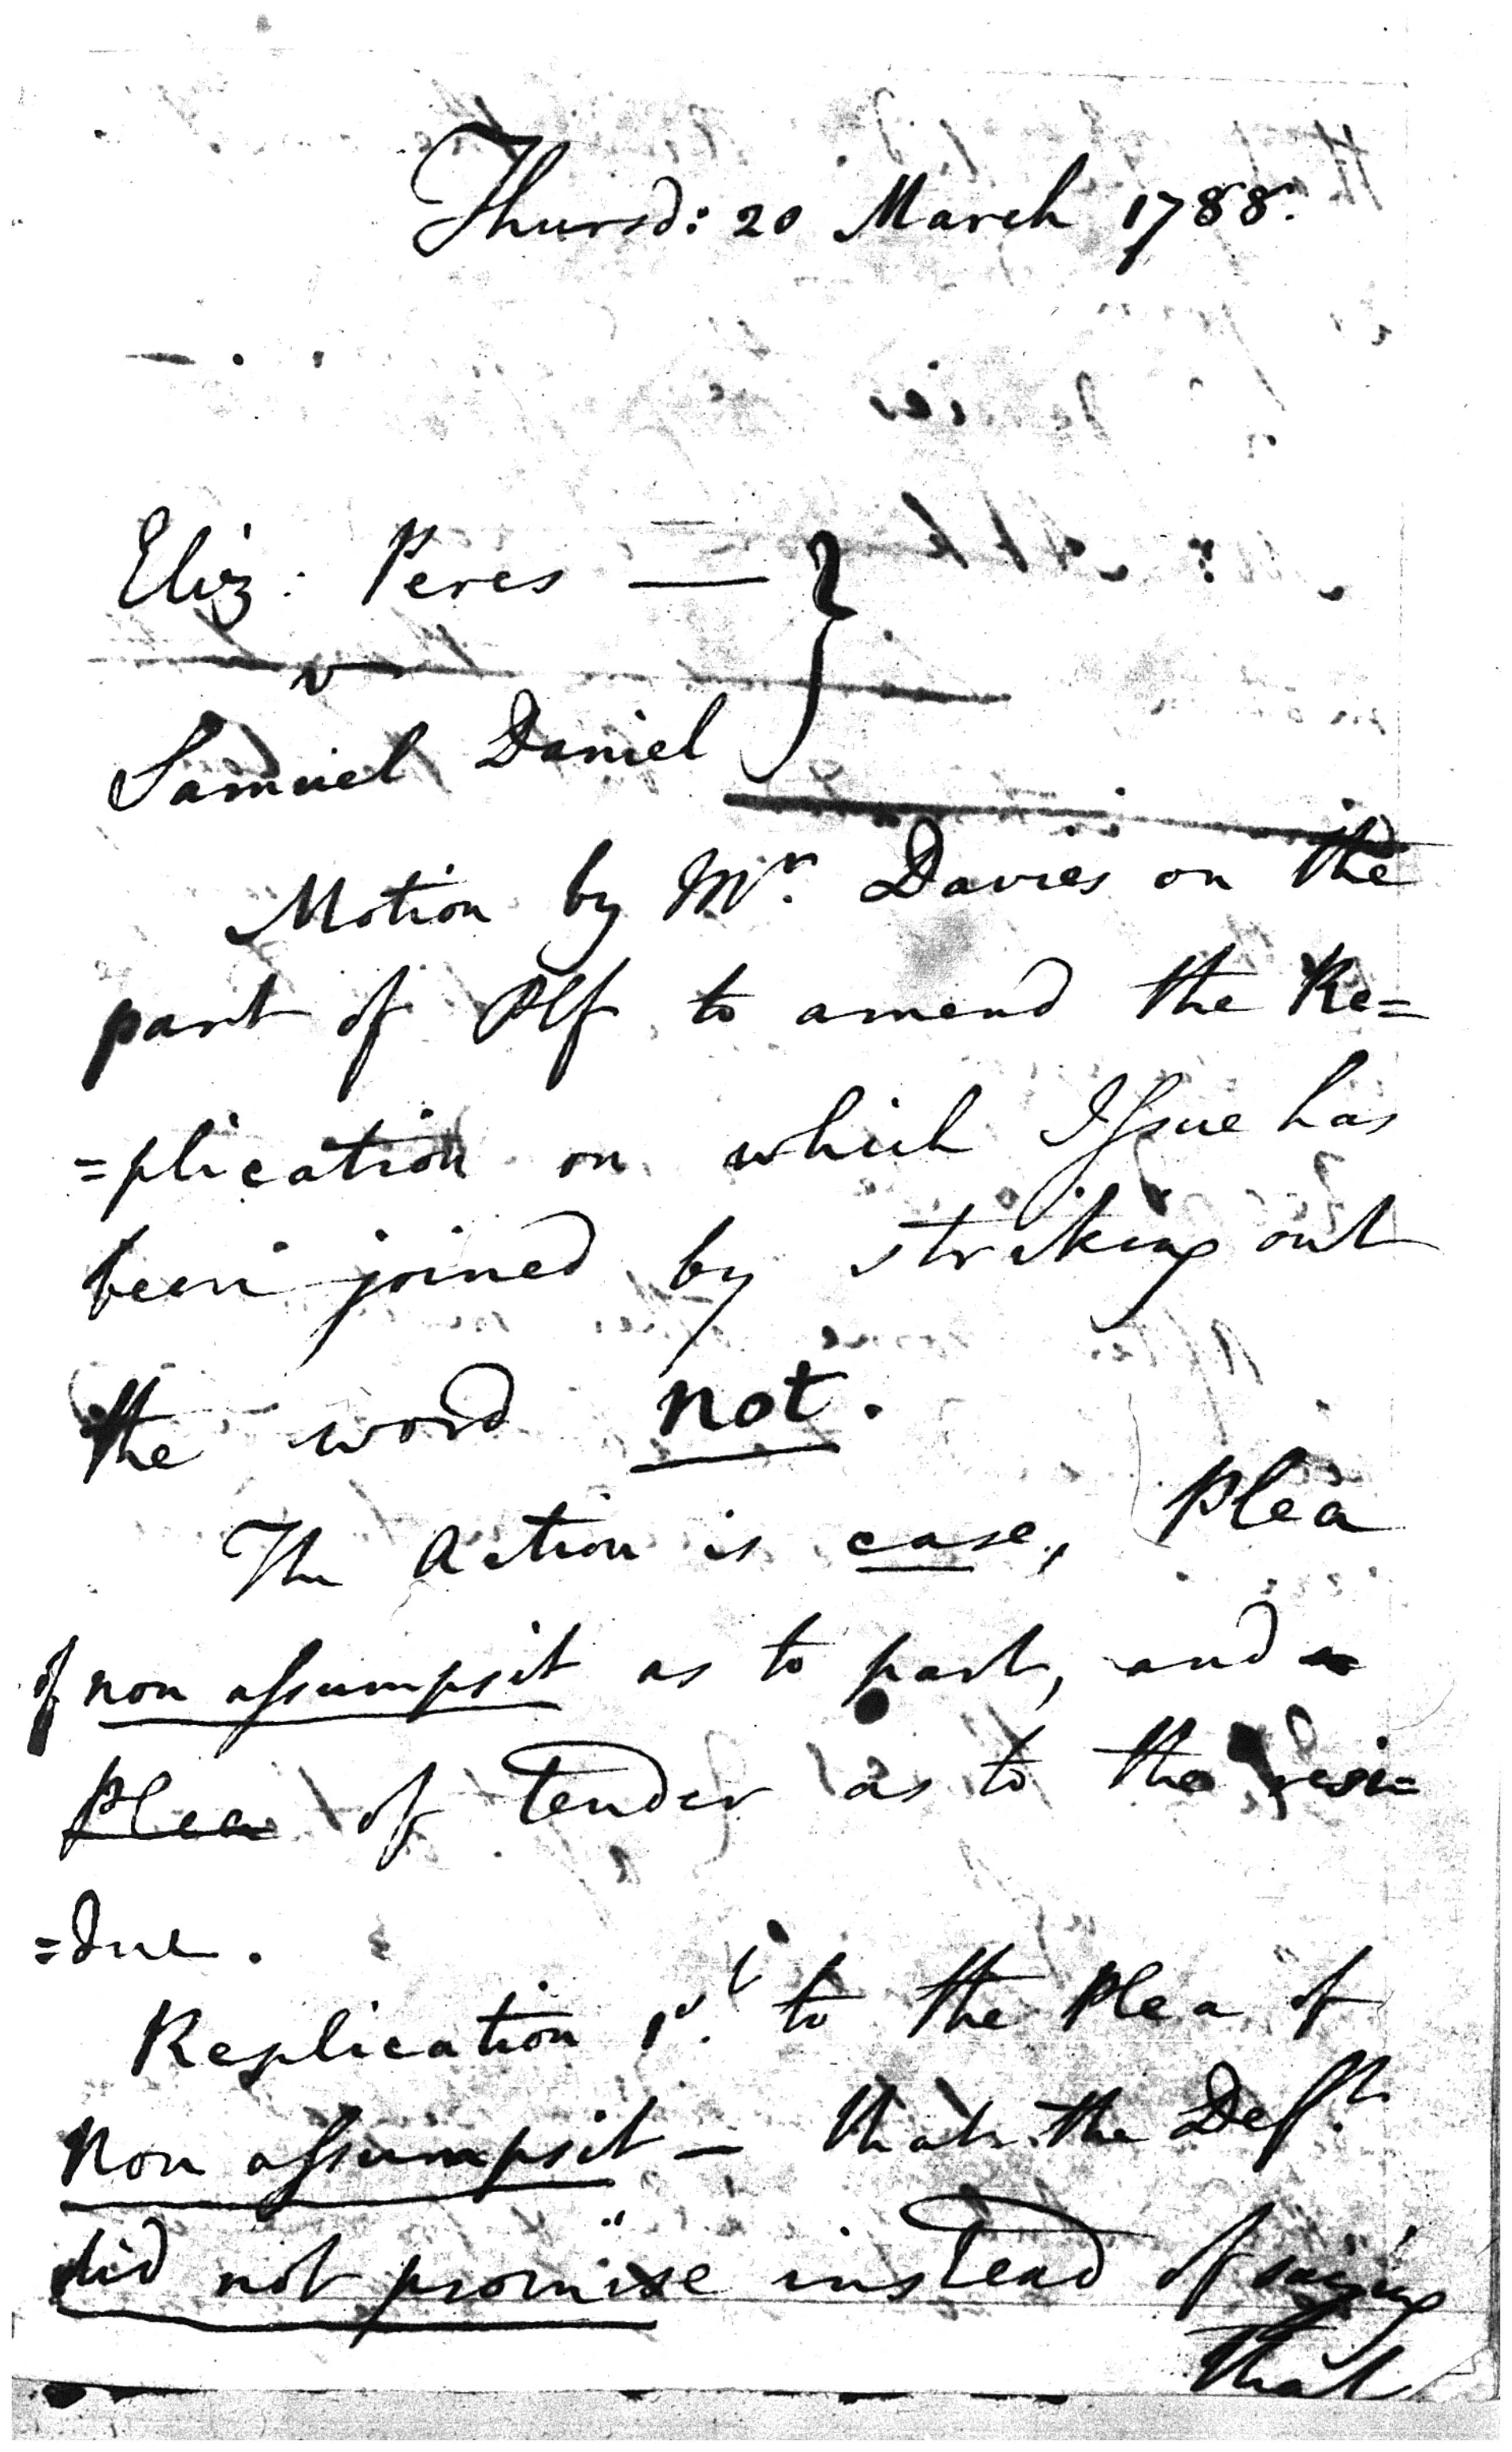 Thursd: 20 March 1788.
Eliz: Peres — }
v
Samuel Daniel
Motion by Mr. Davies on the
part of Plf to amend the Re=
=plication on which Issue has
been joined by striking out
the word not.
The Action is case, Plea
of non assumpsit as to part, and a
Plea of Tender as to the resi=
=due.
Replication 1st. to the Plea of
Non assumpsit — that the Deft.
did not promise instead of saying
that